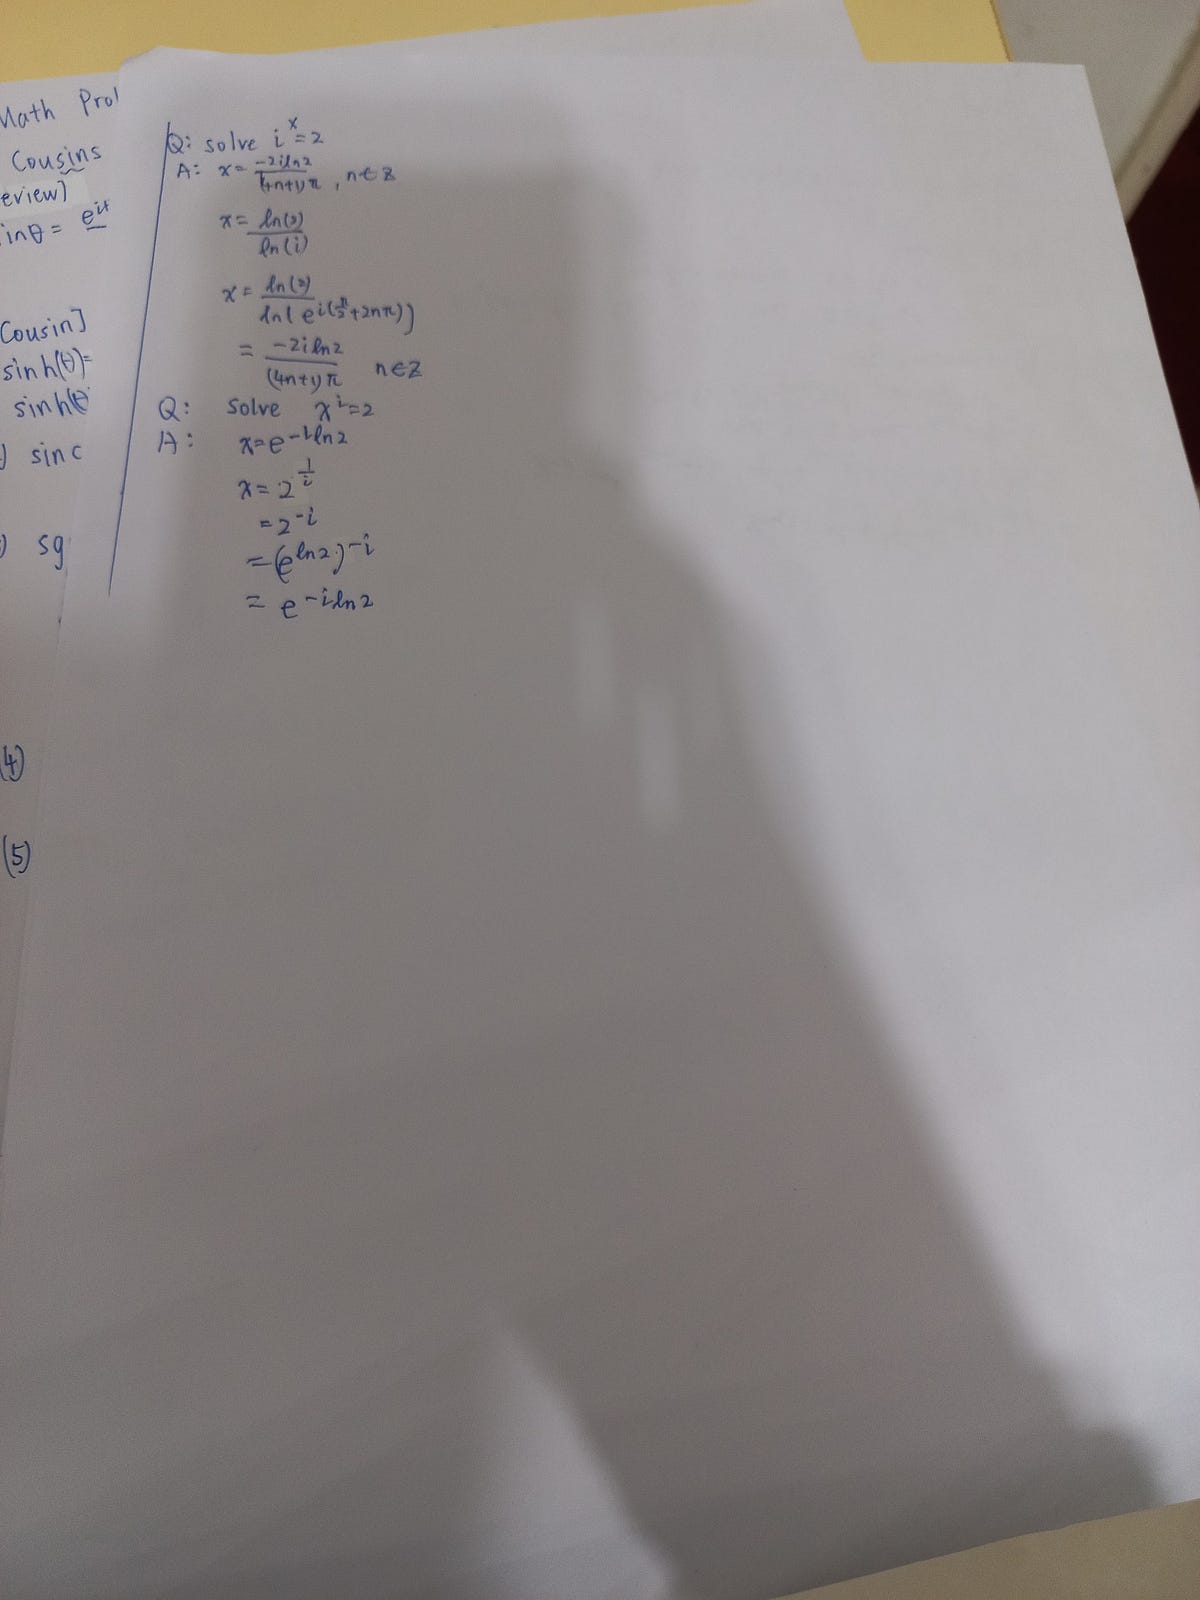 Math Pro
Cousins
eview]
inθ = e^it
Cousin]
sinh(θ)=
sinh(θ
) sinc
) sg
(4)
(5)
Q: solve i^x=2
A: x= -2iln2/(4n+1)π , n∈Z
x= ln(2)/ln(i)
x= ln(2)/ln(e^i(π/2+2nπ))
= -2iln2/(4n+1)π n∈Z
Q: Solve x^i=2
A: x=e^-iln2
x= 2^1/i
=2^-i
=(e^ln2)^-i
= e^-iln2